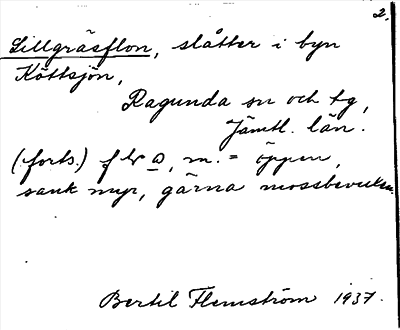 2.
Lillgräsflon, slåtter i byn
Köttsjön,
Ragunda sn och tg,
Jämtl. län.
(forts.) m. = öppen,
sank myr, gärna mossbevuxen.
Bertil Flemström 1937.